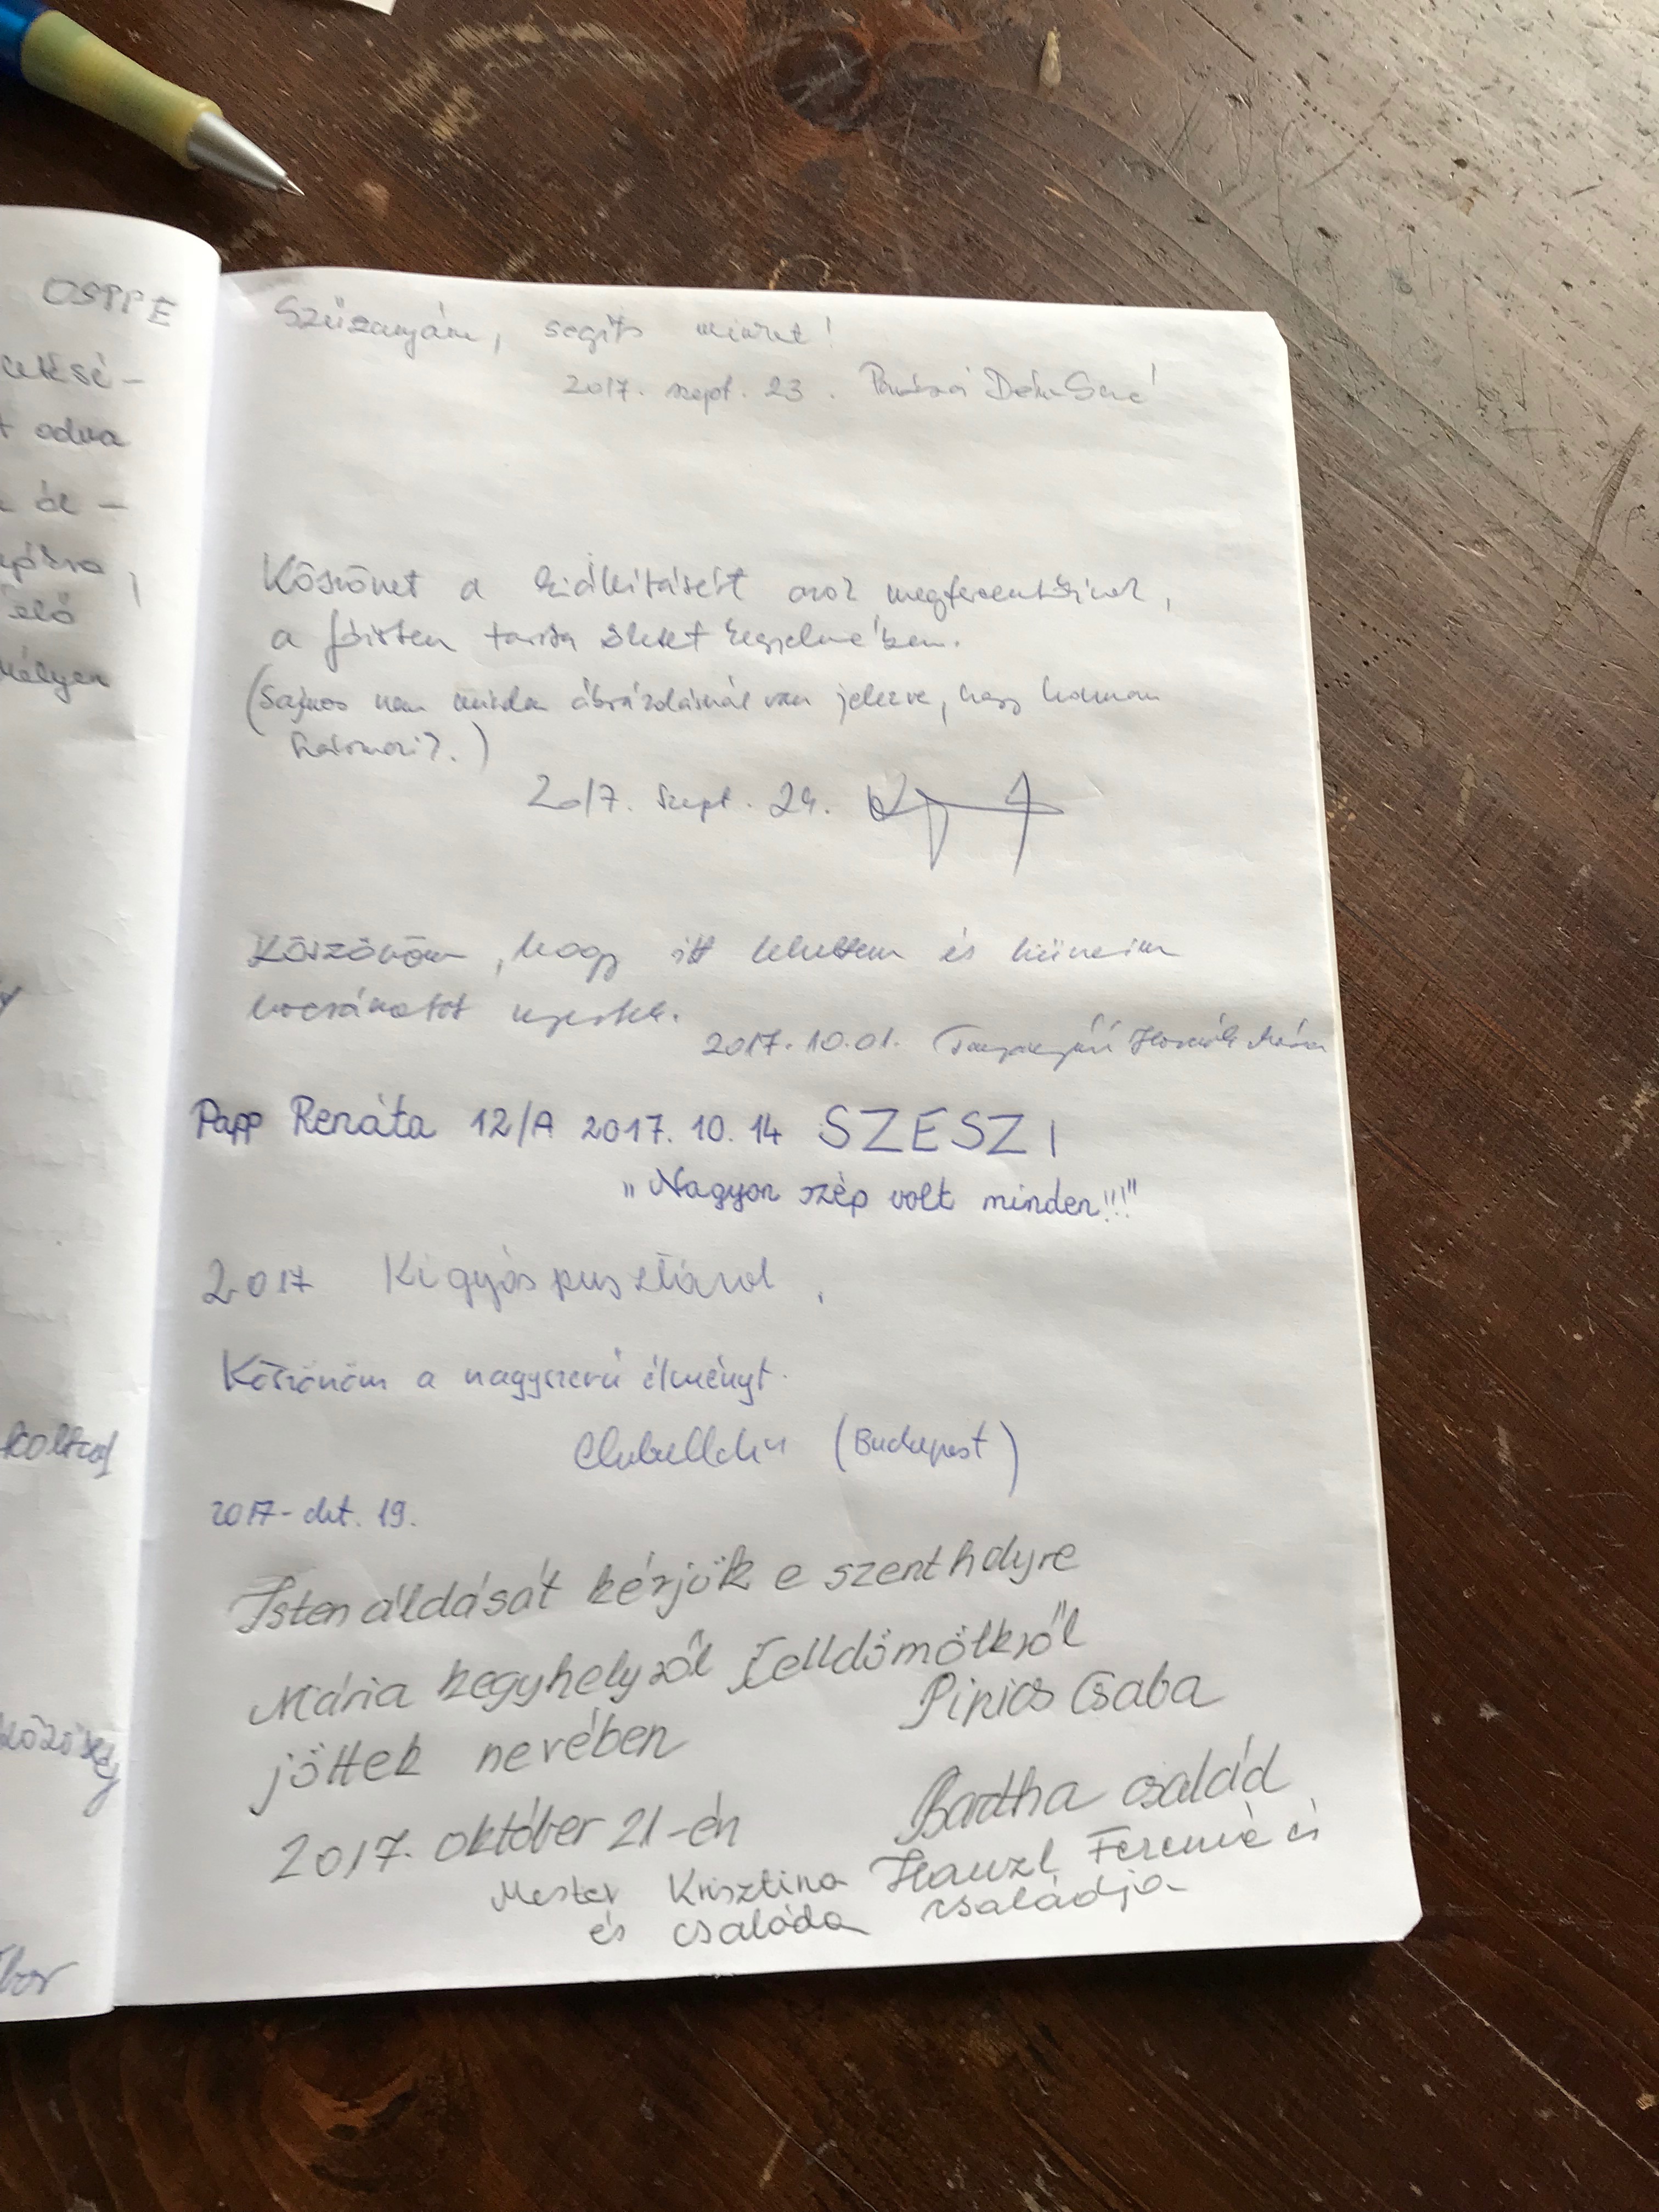 OSPPE
odva
elő
mélyen
Szűzanyám, segíts minket!
2017. szept. 23.
Köszönet a kiállításért azok megteremtőinek,
a Jóisten tartsa őket kegyelmében.
(Sajnos nem minden ábrázolásnál van jelezve, hogy honnan
származik.)
2017. Szept. 24.
Köszönöm, hogy itt lehettem és bűneim
bocsánatát
2017.10.01. Horváth Mária
Papp Renáta 12/A 2017. 10. 14 SZESZI
"Nagyon szép volt minden!!!"
2017 Kigyóspusztárol,
Köszönöm a nagyszerű élményt.
(Budapest)
2017-okt. 19.
Isten áldását kérjük e szenthelyre
Mária kegyhelyről Celldömölkről
jöttek nevében
Pinics Csaba
2017. október 21-én
Bartha család
Mester Krisztina
és családa
Hauzl Ferencné és
családja